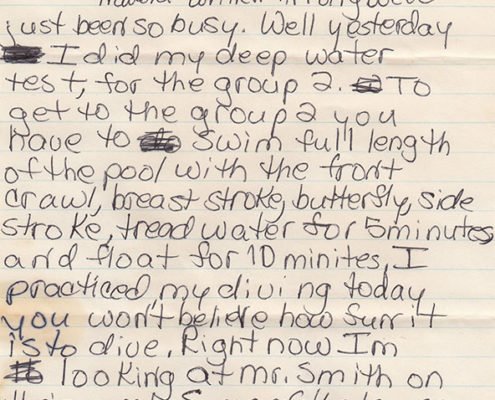 written in
just been so busy. Well yesterday
I did my deep water
test, for the group 2. To
get to the group 2 you
have to swim full length
of the pool with the front
crawl, breast stroke, butterfly, side
stroke, tread water for 5 minutes
and float for 10 minites, I
practiced my diving today
you won't belive how
is to dive. Right now Im
looking at Mr. Smith on